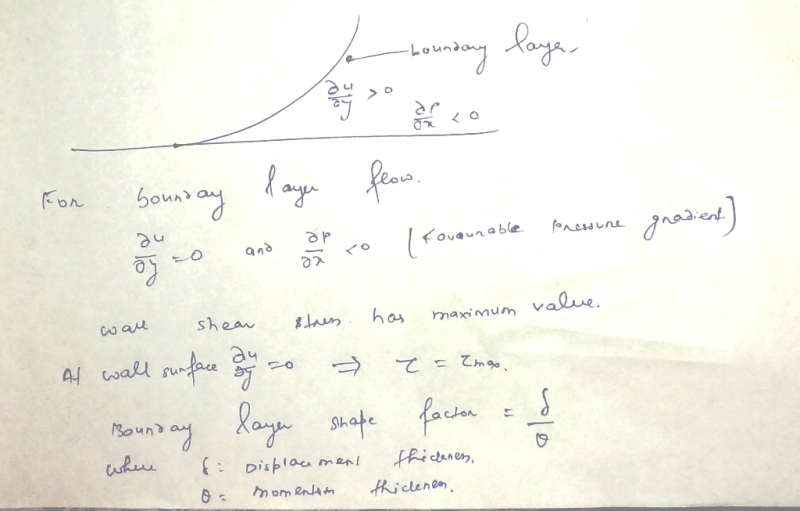 boundary layer.
∂u/∂y > 0
∂P/∂x < 0
For boundary layer flow.
∂u/∂y = 0 and ∂P/∂x < 0 (Favourable pressure gradient)
wall shear stress has maximum value.
At wall surface ∂u/∂y = 0 ⇒ τ = τmax.
Boundary layer shape factor = δ/θ
where δ: Displacement thickness.
θ = momentum thickness.